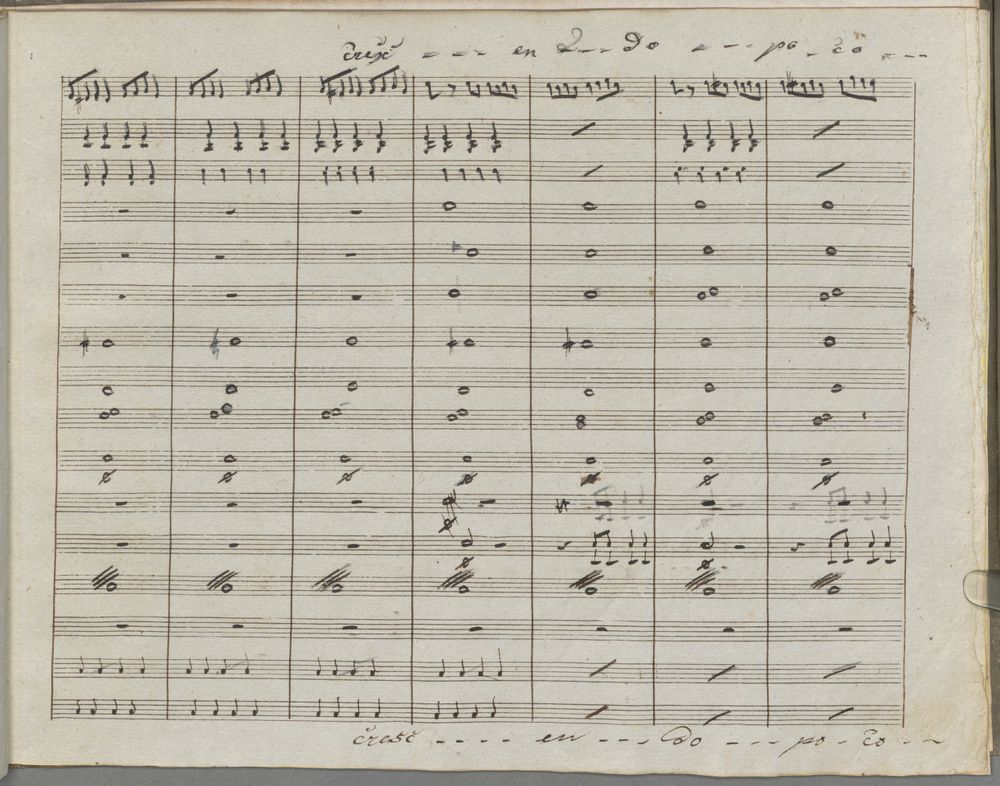 cresc - - - - en - - - do - - - po - co - - -
cresc - - - - en - - - do - - - po - co - - -